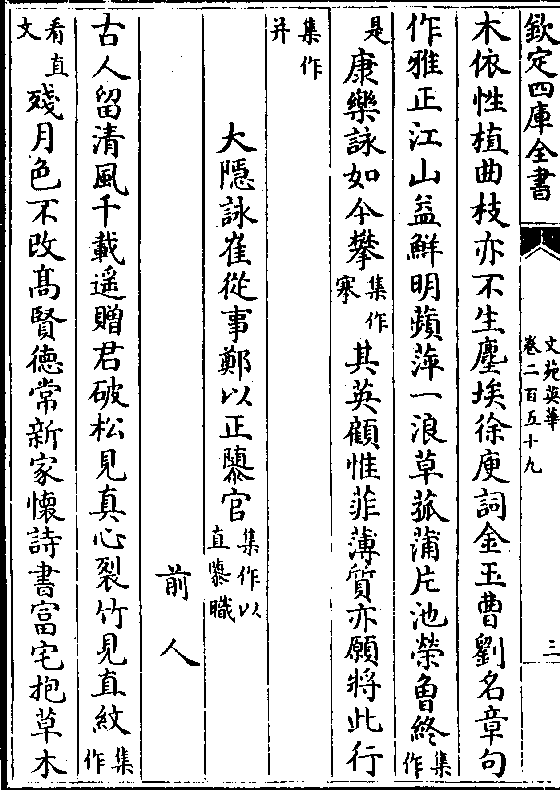 欽定四庫全書
文苑英華
卷二百五十九
三
木依性植曲枝亦不生塵埃徐庾詞金玉曹劉名章句
作雅正江山益鮮明蘋萍一浪草菰蒲片池榮魯終集作
是康樂詠如今攀集作搴其英顧惟菲薄質亦願將此行
集作并
大隱詠崔從事鄭以正隳官集作以直隳職
前人
古人留清風千載遥贈君破松見真心裂竹見直紋集作
看直文殘月色不改高賢德常新家懷詩書富宅抱草木